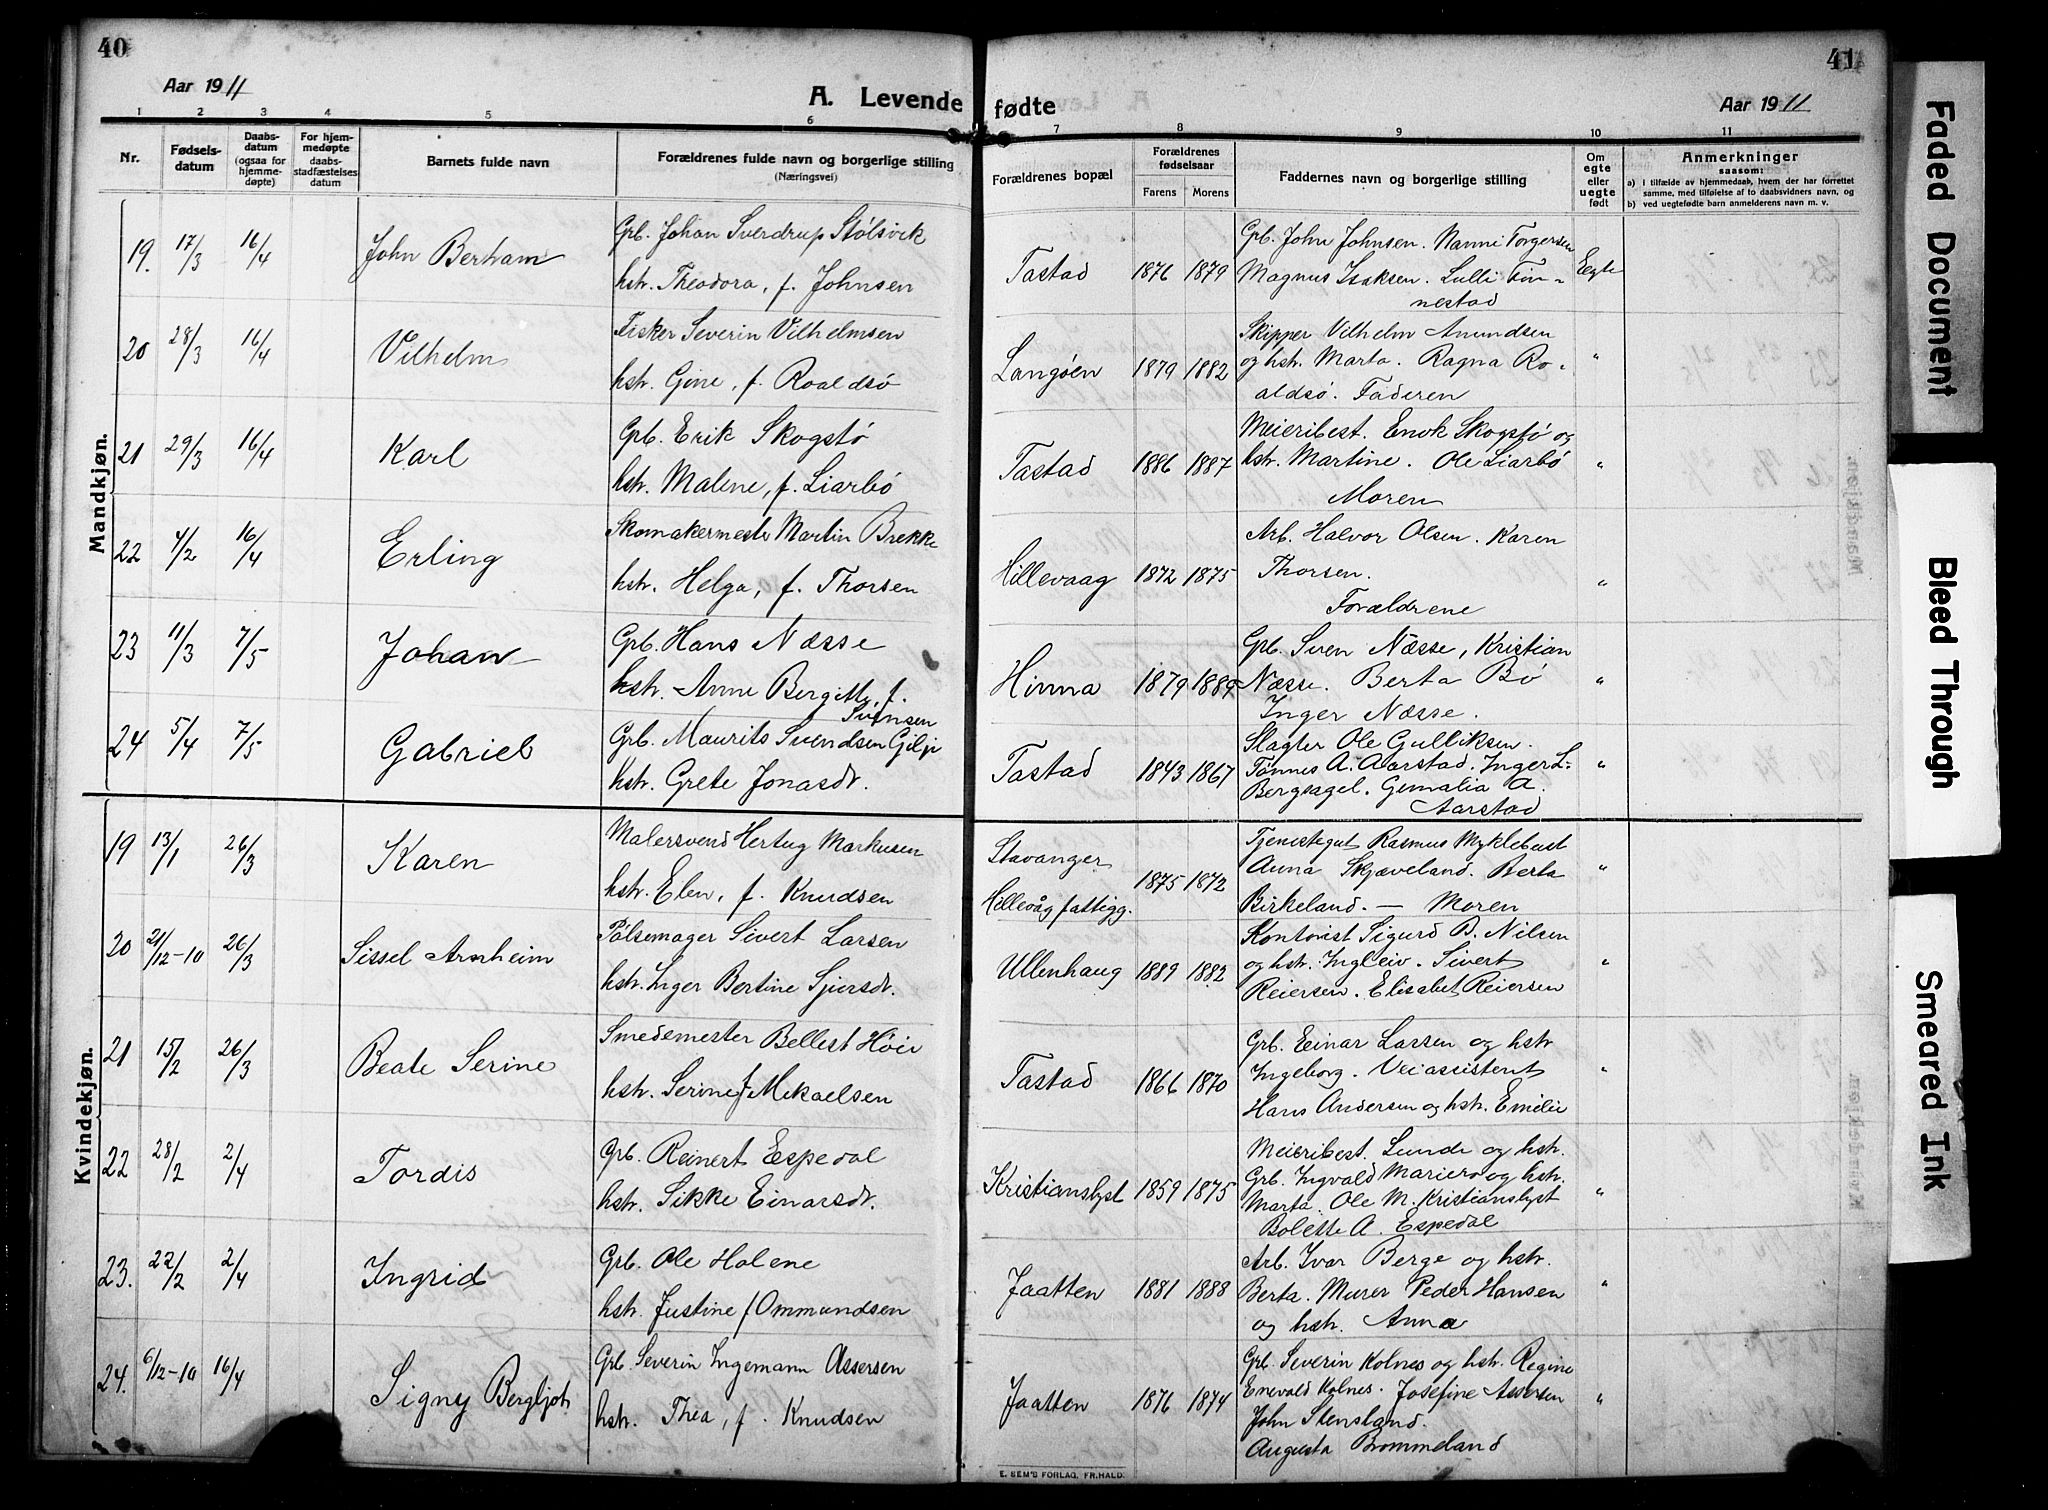 40
Aar 1911
A. Levende
1 2 3 4 5 6
Nr.
Fødsels-
datum
Daabs-
datum
(ogsaa for
hjemme-
døpte)
For hjem-
medøpte
daabs-
stadfæstelses
datum
Barnets fulde navn
Forældrenes fulde navn og borgerlige stilling
(Næringsvei)
Mandkjøn.
19. 17/3 16/4 John Bertram
Grb. Johan Sverdrup Stølsvik
hstr. Theodora, f. Johnsen
20 28/3 16/4 Vilhelm
Fisker Severin Vilhelmsen
hstr. Gine, f. Roaldsø
21 29/3 16/4 Karl
Grb. Erik Skogstø
hstr. Malene, f. Liarbø
22 4/2 16/4 Erling
Skomakermester Martin Brekke
hstr. Helga, f. Thorsen
23 11/3 7/5 Johan
Grb. Hans Næsse
hstr. Anne Bergitte, f.
Svensen
24 5/4 7/5 Gabriel
Grb. Maurits Svendsen Gilje
hstr. Grete Jonasdr.
Kvindekjøn.
19 13/1 26/3 Karen
Malersvend Hertug Markusen
hstr. Elen, f. Knudsen
20 21/12-10 26/3 Sissel Arnheim
Pølsemager Sivert Larsen
hstr. Inger Bertine Sjursdr.
21 15/2 26/3 Beate Serine
Smedemester Bellest Høie
hstr. Serine f. Mikaelsen
22 28/2 2/4 Tordis
Grb. Reinert Espedal
hstr. Sikke Einarsdr.
23. 22/2 2/4 Ingrid
Grb. Ole Halene
hstr. Justine f. Ommundsen
24. 6/12-10 16/4 Signy Bergljot
Grb. Severin Ingemann Assersen
hstr. Thea, f. Knudsen
41
fødte
Aar 1911
7 8 9 10 11
Forældrenes bopæl
Forældrenes
fødselsaar
Farens Morens
Faddernes navn og borgerlige stilling
Om
egte
eller
uegte
født
Anmerkninger
saasom:
a) I tilfælde av hjemmedaab, hvem der har forrettet
samme, med tilføielse af to daabsvidners navn, og
b) ved uegtefødte barn anmelderens navn m. v.
Tastad 1876 1879
Grb. John Johnsen. Nanni Torgersen
Magnus Isaksen. Lulli Tin-
nestad
Egte
Langøen 1879 1882
Skipper Vilhelm Amundsen
og hstr. Marta. Ragna Ro-
aldsø. Faderen
"
Tastad 1886 1887
Meieribest. Enok Skogstø og
hstr. Martine. Ole Liarbø
Moren
"
Hillevaag 1872 1875
Arb. Halvor Olsen. Karen
Thorsen.
Forældrene
"
Hinna 1879 1889
Grb. Sven Næsse, Kristian
Næsse. Berta Bø
Inger Næsse.
"
Tastad 1843 1867
Slagter Ole Gulliksen.
Tønnes A. Aarstad. Inger L.
Bergsagel. Gemalia A.
Aarstad
"
Stavanger
Hillevåg fattigg. 1875 1872
Tjenestegut Rasmus Myklebust
Anna Skjæveland. Berta
Birkeland. — Moren
"
Ullenhaug 1889 1882
Kontorist Sigurd B. Nilsen
og hstr. Ingleiv. Sivert
Reiersen. Elisabet Reiersen
"
Tastad 1866 1870
Grb. Einar Larsen og hstr
Ingeborg. Veiassistent
Hans Andersen og hstr. Emilie
"
Kristianslyst 1859 1875
Meieribest. Lunde og hstr.
Grb. Ingvald Mariero og hstr.
Marta. Ole M. Kristianslyst
Bolette A. Espedal
"
Jaatten 1881 1888
Arb. Ivar Berge og hstr.
Berta. Murer Peder Hansen
og hstr. Anna
"
Jaatten 1876 1874
Grb. Severin Kolnes og hstr. Regine
Enevald Kolnes. Josefine Assersen
John Stensland.
Augusta Brommeland
"
E. SEM'S FORLAG, FR.HALD.
Faded Document
Bleed Through
Smeared Ink